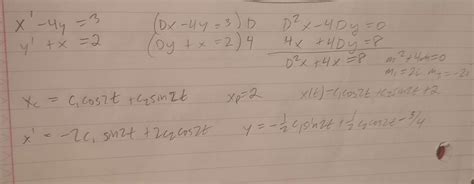 x' - 4y = 3 (Dx - 4y = 3) D D²x - 4Dy = 0
y' + x = 2 (Dy + x = 2) 4 4x + 4Dy = 8
D²x + 4x = 8 m² + 4 = 0
m₁ = 2i, m₂ = -2i
x_c = c₁cos2t + c₂sin2t x_p = 2 x(t) = c₁cos2t + c₂sin2t + 2
x' = -2c₁ sin2t + 2c₂cos2t y = -½c₁sin2t + ½c₂cos2t - 3/4